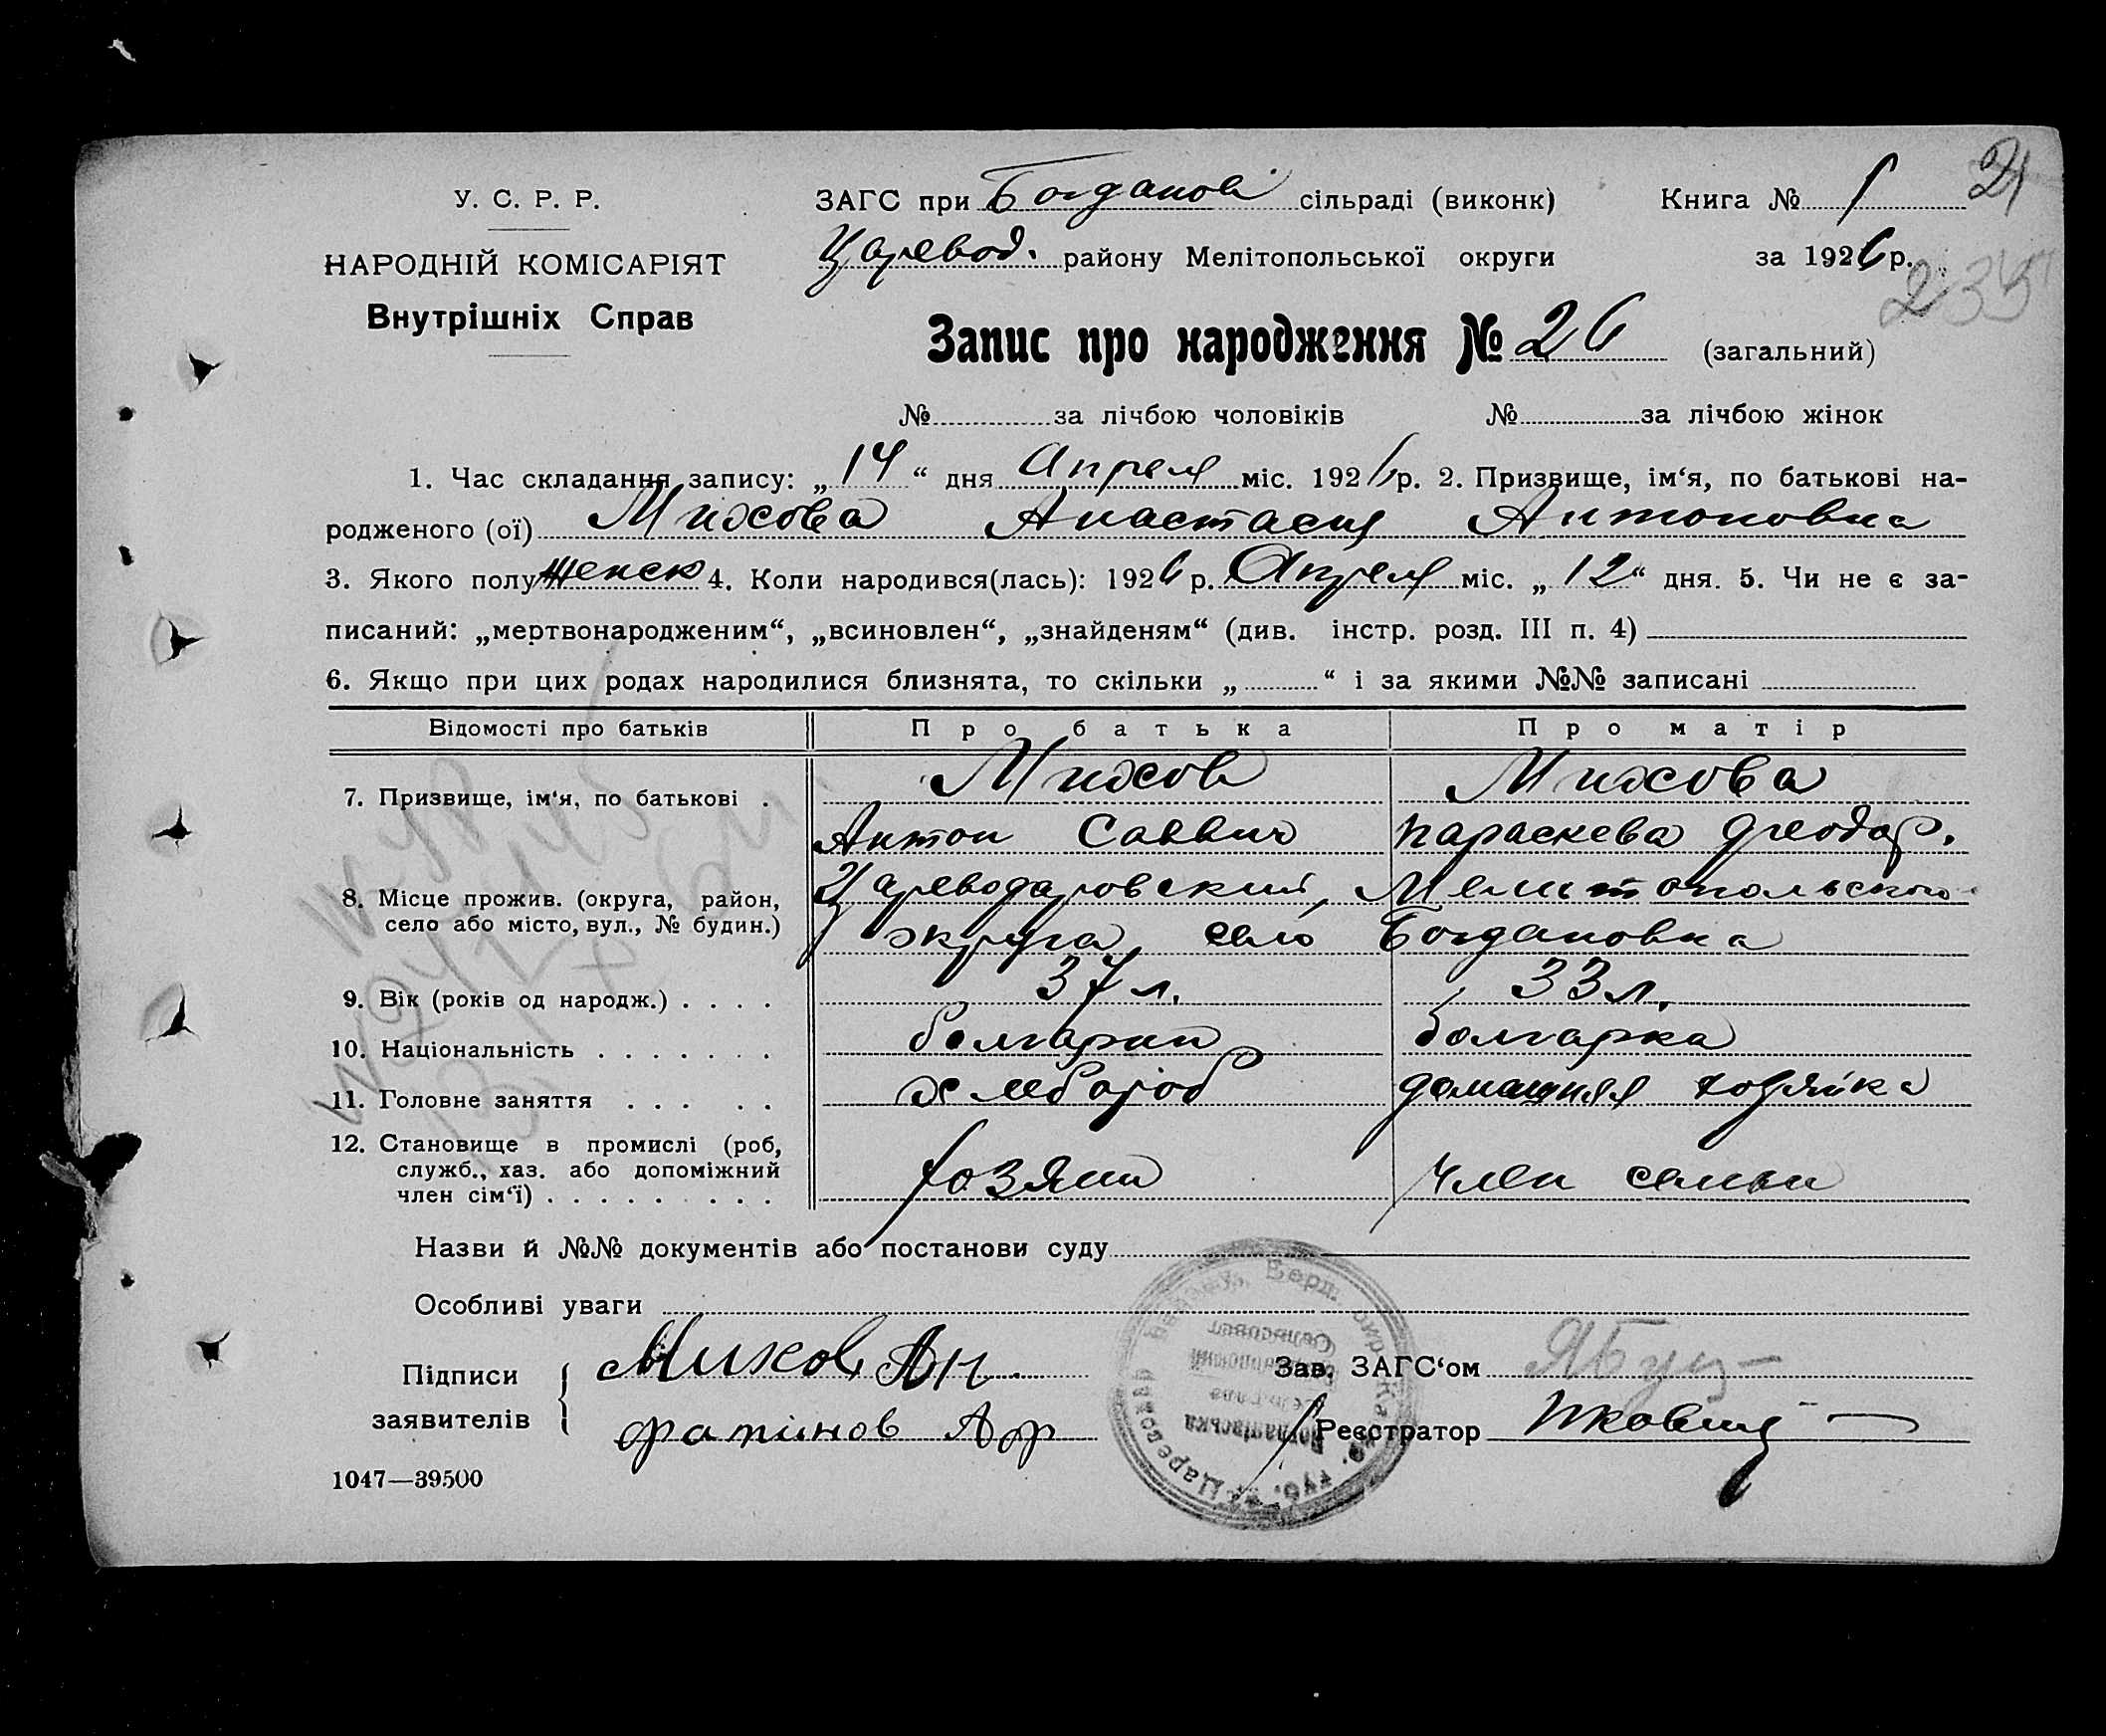 У. С. Р. Р.
НАРОДНІЙ КОМІСАРІЯТ
Внутрішніх Справ
ЗАГС при Богданов сільраді (виконк) Книга № 1 21
Царевод. району Мелітопольської округи за 1926 р.
235
Запис про народження № 26 (загальний)
№ за лічбою чоловіків № за лічбою жінок
1. Час складання запису: „14“ дня Апреля міс. 1926 р. 2. Призвище, ім‘я, по батькові на-
родженого (ої) Михова Анастасия Антоновна
3. Якого полу женск 4. Коли народився(лась): 1926 р. Апреля міс. „12“ дня. 5. Чи не є за-
писаний: „мертвонародженим“, „всиновлен“, „знайденям“ (див. інстр. розд. III п. 4)
6. Якщо при цих родах народилися близнята, то скільки „ “ і за якими №№ записані
Відомості про батьків Про батька Про матір
7. Призвище, ім‘я, по батькові . Михов Михова
Антон Саввич Параскева Феодор.
8. Місце прожив. (округа, район, Цареводаровский, Мелитопольского
село або місто, вул., № будин.) округа, село Богдановка
9. Вік (років од народж.) . . . . 37 л. 33 л.
10. Національність . . . . . . . болгарин болгарка
11. Головне заняття . . . . . хлебороб домашняя хозяйка
12. Становище в промислі (роб,
служб., хаз. або допоміжний хозяин член семьи
член сім‘ї) . . . . . . . . .
Назви й №№ документів або постанови суду
Особливі уваги
Підписи Михов Ан. Зав. ЗАГС‘ом
заявителів Реєстратор
1047—39500